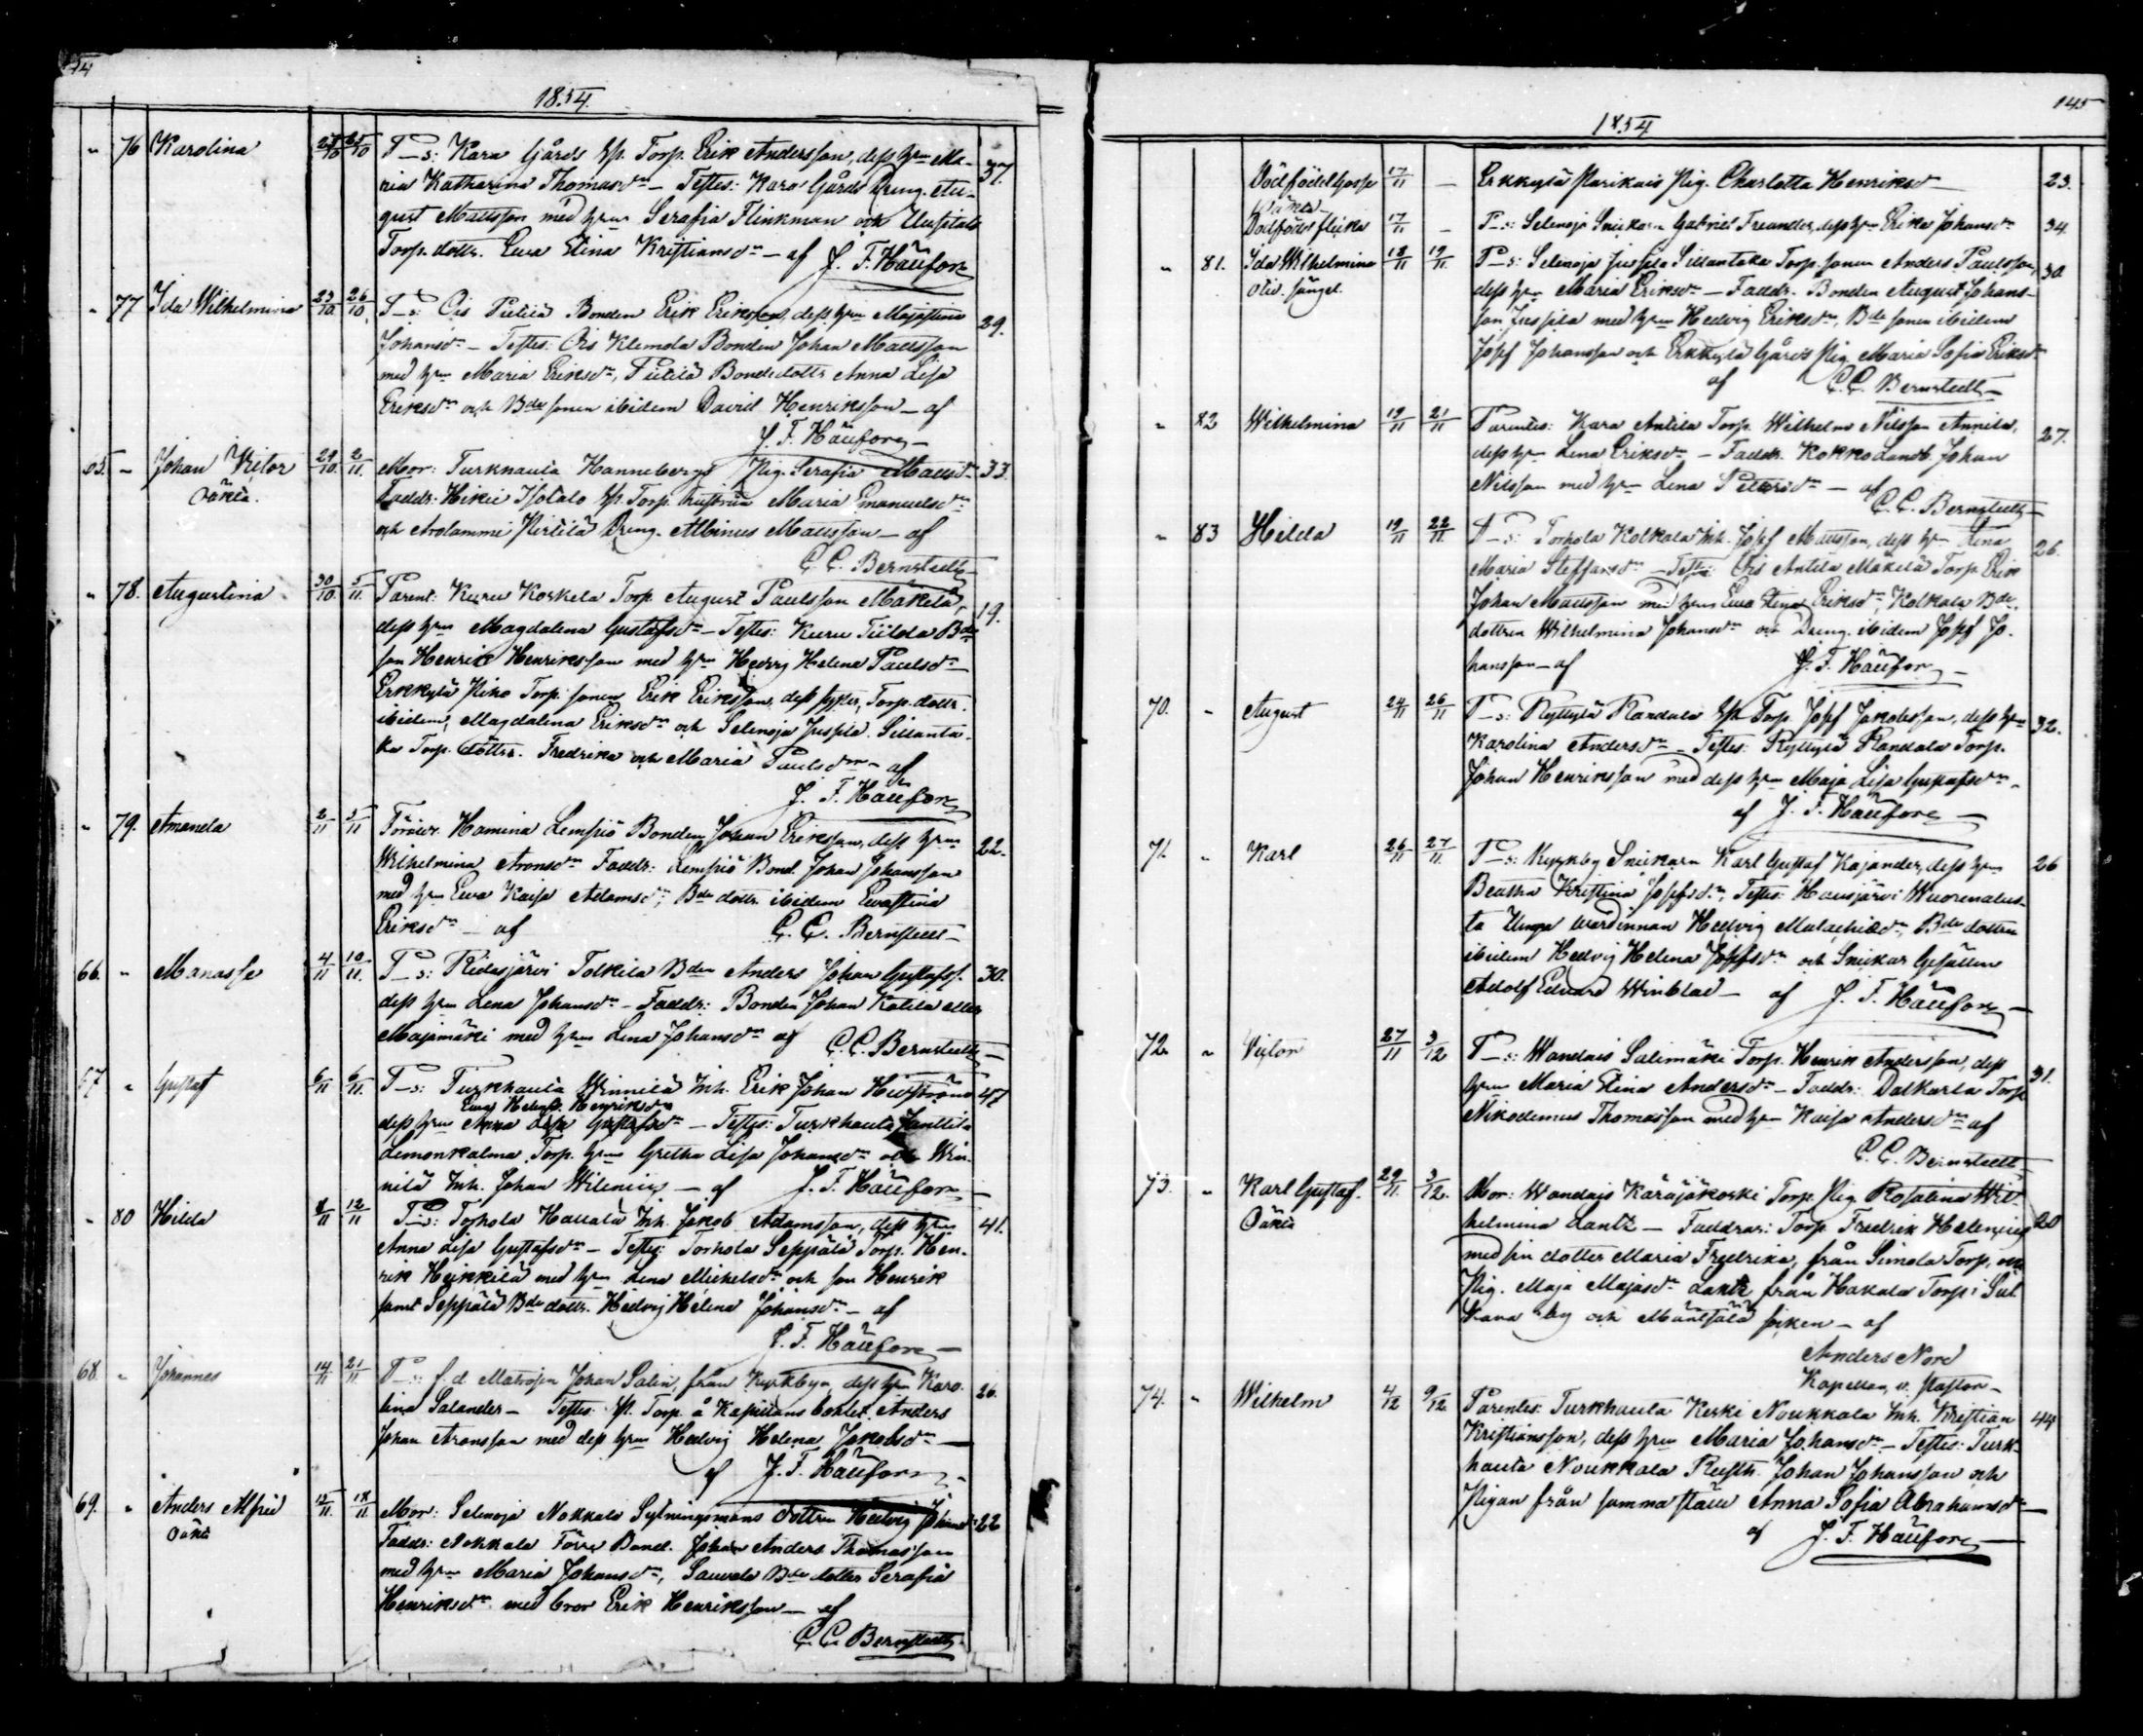 1854.
" 76 Karolina 23/10 25/10 P_s: Kara Gårds Sp. Torp. Erik Andersson, dess hru Ma- 37.
ria Katharina Thomasdr – Testes: Kara Gårds Dreng. Au-
gust Mattsson med hru Serafia Flinkman och Uusitalo
Torp. dottr. Ewa Stina Kristiansdr – af J. F. Häufors
" 77 Ida Wilhelmina 23/10 26/10 P_s: Ois Pietilä Bonden Erik Eriksson, dess hru Majastina 29.
Johansdr – Testes: Ois Klemola Bonden Johan Mattsson
med hru Maria Eriksdr, Pietilä Bondedottr Anna Lisa
Eriksdr och Bde sonen ibidem David Henriksson – af
J. F. Häufors –
65. – Johan Victor 29/10 2/11. Mor: Turkhauta Hannebergs Pig. Serafia Mattsdr 33.
Oäkta. Faddr: Hikiä Isotalo Sp. Torp. hustrun Maria Emanuelsdr
och Arolammi Pirtilä Dreng. Albinus Mattsson – af
C. C. Bernstedt –
" 78. Augustina 30/10 5/11. Parent: Kuru Koskela Torp. August Paulsson Mäkelä, 19.
dess hru Magdalena Gustafsdr – Testes: Kuru Tiilola Bde
son Henrik Henriksson med hru Hedvig Helena Paulsdr –
Erkkylä Piko Torp. sonen Erik Eriksson, dess syster, Torp. dottr.
ibidem, Magdalena Eriksdr och Selenoja Jussila Sillanta-
ka Torp. döttrr. Fredrika och Maria Paulsdrr – af
J. F. Häufors
" 79. Amanda 2/11 5/11 Föräldr. Hamina Lempiö Bonden Johan Eriksson, dess hru 22.
Wilhelmina Aronsdr Faddr: Lempiö Bond. Johan Johansson
med hru Ewa Kaisa Adamsdr, Bde dottr. ibidem Ewastina
Eriksdr – af C. C. Bernstedt –
66. " Manasse 4/11 10/11. P_s: Ridasjärvi Tolkila Bden Anders Johan Gustafss. 30.
dess hru Lena Johansdr – Faddr: Bonden Johan Katila eller
Majamäki med hru Lena Johansdr af C. C. Bernstedt –
67 " Gustaf 6/11 6/11. P_s: Turkhauta Winnilä Inh. Erik Johan 47
Ewa Helena Henriksdr
dess hru Anna Lisa Gustafsdr – Testes: Turkhauta Janttila
Lemonkalma Torp. hru Gretha Lisa Johansdr och Win-
nilä Inh. Johan Wilenius – af J. F. Häufors –
" 80 Hilda 8/11 12/11 P_s: Torhola Hallala Inh. Jakob Adamsson, dess hru 41.
Anna Lisa Gustafsdr – Testes: Torhola Seppälä Torp. Hen-
rik Heikkilä med hru Lena Michelsdr och son Henrik
samt Seppälä Bde dottr. Hedvig Helena Johansdr – af
J. F. Häufors –
68. " Johannes 14/11 21/11 P_s: f. d. Matrosen Johan Salin, från Kyrkbyn, dess hru Karo- 26.
lina Salander – Testes: Sp. Torp. å Kapellans bohlet Anders
Johan Aronsson med dess hru Hedvig Helena Jakobsdr –
af J. F. Häufors –
69. " Anders Alfred 15/11. 18/11 Mor: Selenoja Nokkala Sytningsmans dottren Hedvig Johansdr 22
Oäkta Faddr: Nokkala Förre Bond. Johan Anders Thomasson
med hru Maria Johansdr, Sauvala Bde dotter Serafia
Henriksdr med bror Erik Henriksson – af
C. C. Bernstedt.
145
1854
Dödfödd Gosse 17/11 – Erkkylä Parikais Pig. Charlotta Henriksdr – 23.
Oäkta –
Dödfödd flicka 17/11 – P_s: Selenoja Snickarn Gabriel Treander, dess hru Erika Johansdr 34.
" 81. Ida Wilhelmina 18/11 19/11. P_s: Selenoja Jussila Sillantaka Torp. sonen Anders Paulsson, 30
dess hru Maria Eriksdr – Faddr. Bonden August Johans-
son Jussila med hru Hedvig Eriksdr, Bde sonen ibidem
Josef Johansson och Erkkylä Gårds Pig. Maria Sofia Eriksdr
af C. C. Bernstedt –
" 82 Wilhelmina 19/11 21/11 Parentes: Kara Anttila Torp. Wilhelm Nilsson Annila, 27.
dess hru Lena Eriksdr – Faddr. Kokko Landb. Johan
Nilsson med hru Lena Pettersdr – af
C. C. Bernstedt –
" 83 Hilda 19/11 22/11. P_s: Torhola Kolkala Inh. Josef Mattsson, dess hru Lena 26.
Maria Steffansdr – Testes: Ois Anttila Mäkelä Torp. Erik
Johan Mattsson med hru Ewa Stina Eriksdr, Kolkala Bde.
dottren Wilhelmina Johansdr och Dreng. ibidem Josef Jo-
hansson – af J. F. Häufors –
70. " August 24/11 26/11 P_s: Ryttylä Pandala Sp. Torp. Josef Jakobsson, dess hru 32.
Karolina Andersdr – Testes: Ryttylä Pandala Torp.
Johan Henriksson med dess hru Maja Lisa Gustafsdr –
af J. F. Häufors –
71. " Karl 26/11 27/11. P_s: Kyrkby Snickarn Karl Gustaf Kajander, dess hru 26
Beatha Kristina Josefsdr, Testes: Hausjärvi Wuorenalus-
ta Unga wärdinnan Hedvig Malachiasdr, Bde dottren
ibidem Hedvig Helena Josefsdr och Snickar Gesällen
Adolf Edvard Winblad – af J. F. Häufors –
72. " Victor 27/11 3/12 P_s: Wandais Salimäki Torp. Henrik Andersson, dess 31.
hru Maria Stina Andersdr – Faddr: Dalkarla Torp.
Nikodemus Thomasson med hru Kaisa Andersdr af
C. C. Bernstedt –
73. " Karl Gustaf. 29/11. 3/12. Mor: Wandais Käräjäkoski Torp. Pig. Rosalina Wil-
Oäkta helmina Lantz – Faddrar: Torp. Fredrik Helenius 20
med sin dotter Maria Fredrika, från Simola Torp. och
Pig. Maja Majasdr Lantz från Hakala Torp i
by och Mäntsälä socken – af
Anders Nord
Kapellan, v. Pastor –
74. " Wilhelm 4/12 9/12 Parentes: Turkhauta Keski Noukkala Inh. Kristian 44
Kristiansson, dess hru Maria Johansdr – Testes: Turk-
hauta Noukkala Rusth. Johan Johansson och
Pigan från samma ställe Anna Sofia Abrahamsdr –
af J. F. Häufors –